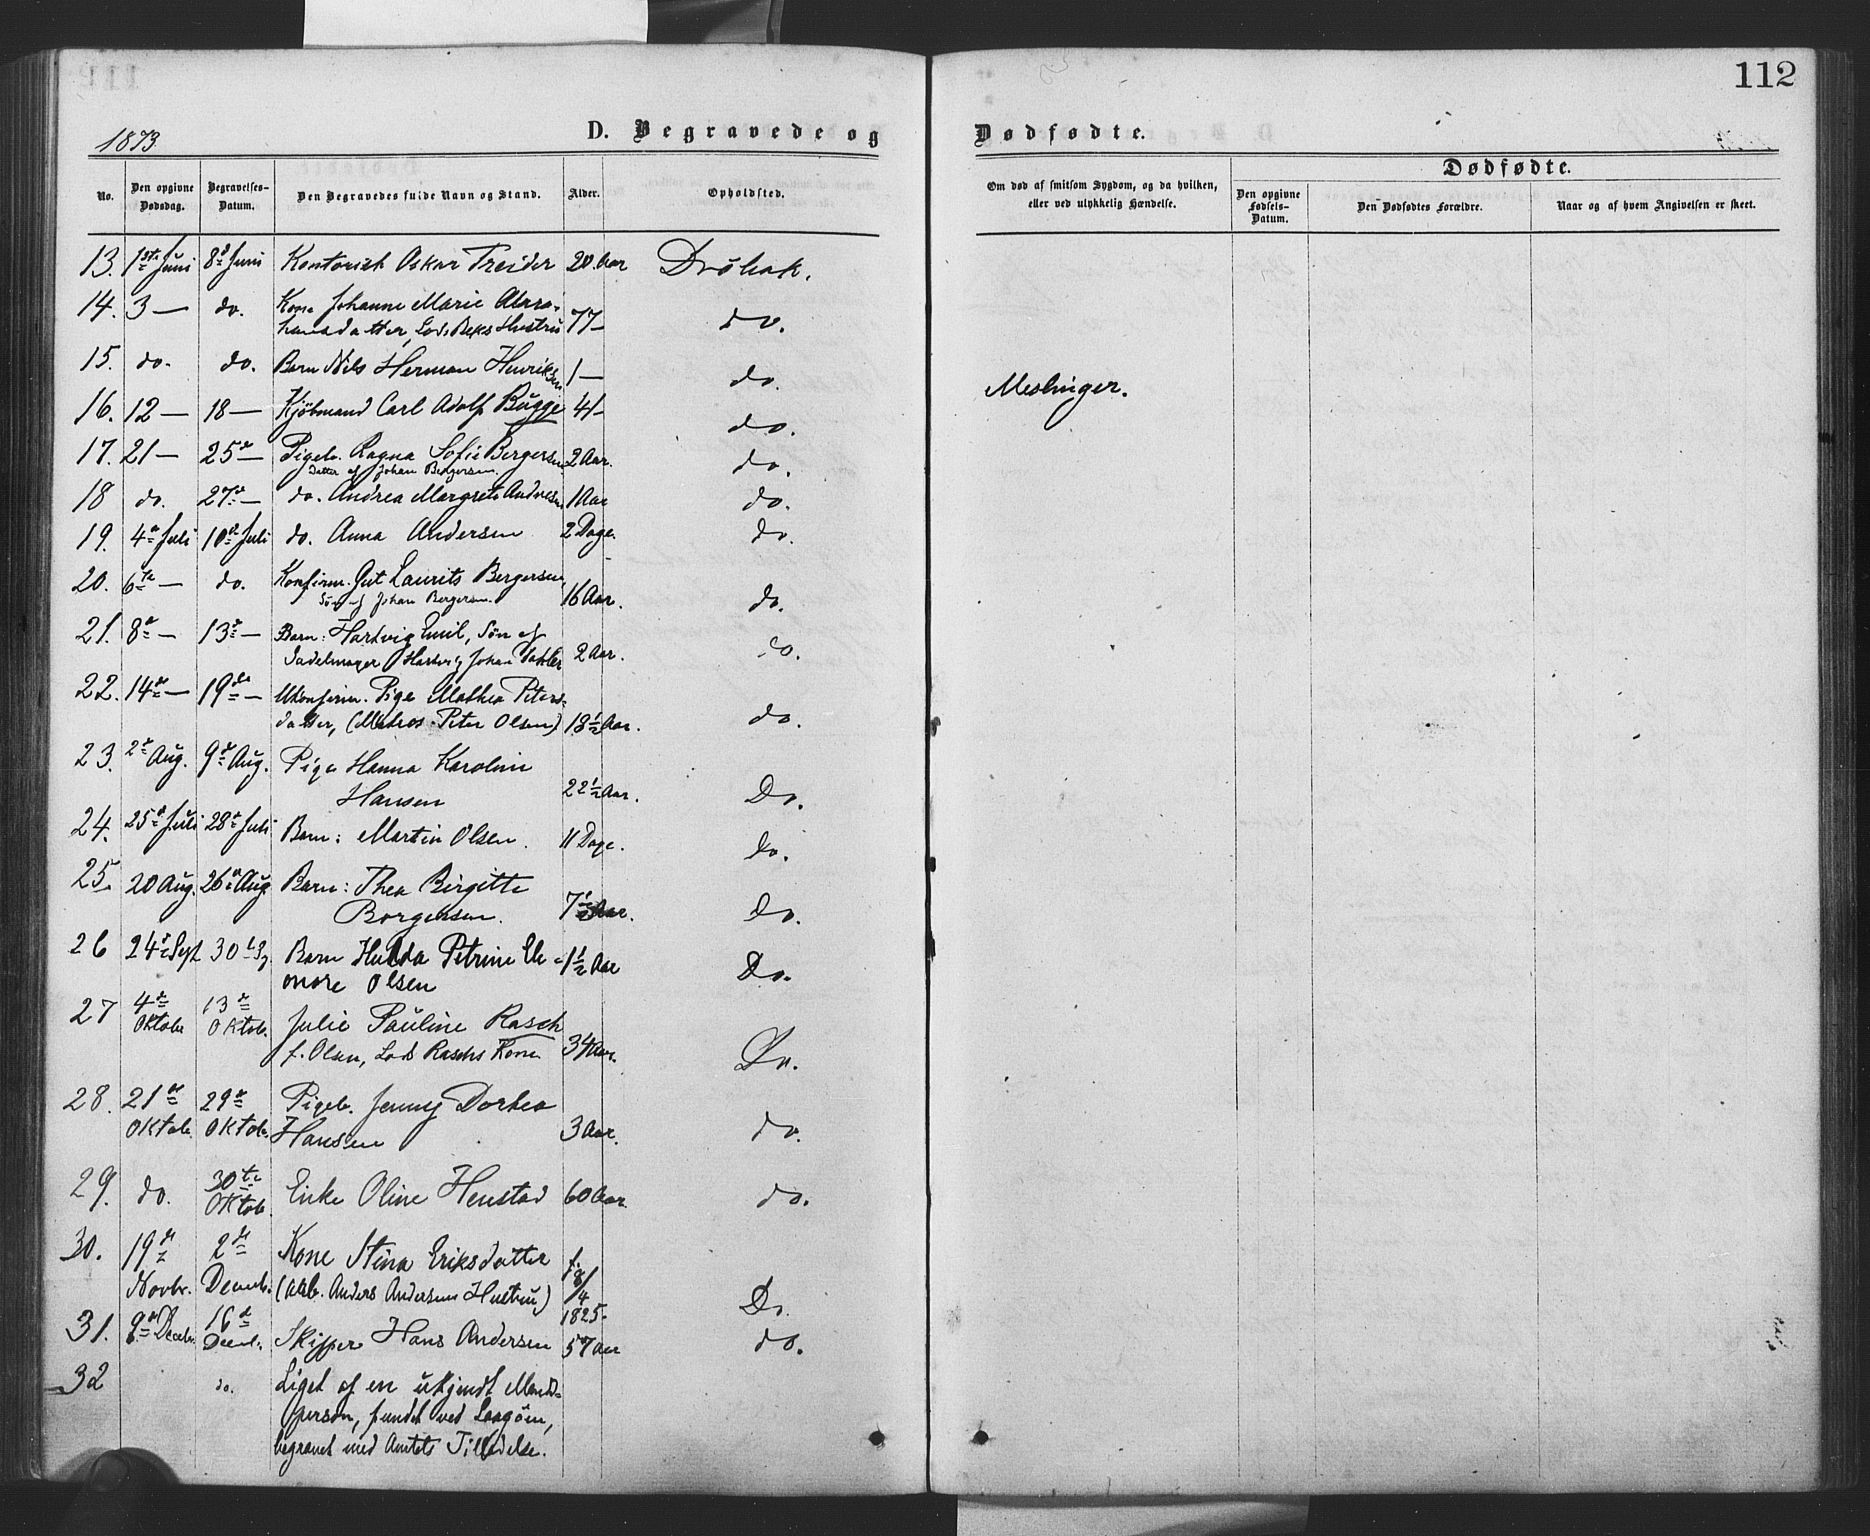 112
1873
D. Begravede og
Dødfødte.
No.
Den opgivne Dødsdag.
Begravelses-Datum.
Den Begravedes fulde Navn og Stand.
Alder.
Opholdsted.
Om død af smitsom Sygdom, og da hvilken, eller ved ulykkelig Hændelse.
Dødfødte.
Den opgivne Fødsels-Datum.
Den Dødfødtes Forældre.
Naar og af hvem Angivelsen er skeet.
13. 1ste Juni 8de Juni Kontorist Oskar Treider 20 Aar Drøbak.
14. 3 — do. Kone Johanne Marie Abra-
hamsdatter, Lods Beks Hustru 77 — do.
15. do. do. Barn Nils Herman Henriksen 1 — do. Meslinger.
16. 12 — 18 — Kjøbmand Carl Adolf Bugge 41 — do.
17. 21 — 25de — Pigeb. Ragna Sofie Bergersen 2 Aar. do.
Datter af Johan Bergersen.
18 do. 27de — do. Andrea Margrete Andresen 1 Aar do.
19. 4de Juli 10de Juli do. Anna Andersen 2 Dage. do.
20. 6te — do. Konfirm. Gut Laurits Bergersen,
Søn af Johan Bergersen. 16 Aar. do.
21. 8de — 13de — Barn: Hartvig Emil, Søn af
Sadelmager Hartvig Johan 2 Aar. do.
22. 14de — 19de — Ukonfirm. Pige Mathea Peters-
datter, (Matros Peter Olsen) 18 1/2 Aar. do.
23. 2de Aug. 9de Aug. Pige Hanna Karoline
Hansen 22 1/2 Aar. Do.
24. 25de Juli 28de Juli Barn: Martin Olsen. 11 Dage. Do.
25. 20 Aug. 26de Aug. Barn: Thea Birgitte
Borgersen. 7 1/2 Aar. Do.
26 24de Sept 30 Barn Hulda Petrine Ele-
onore Olsen 1 1/2 Aar Do.
27 4de Oktobr 13de Oktob. Julie Pauline Rasch
f. Olsen, Lods Raschs Kone 34 Aar. Do.
28. 21de Oktob. 29de Oktob. Pigeb. Jenny Dorthea
Hansen 3 Aar. do.
29. do. 30te Oktob. Enke Oline Henstad 60 Aar. do.
30. 19de Novbr. 2de Decemb. Kone Stina Eriksdatter
(Arb. Anders Andersens Hustru) f. 8/4 1825. Do.
31. 9de Decebr. 16de Decemb. Skipper Hans Andersen 57 Aar do.
32 do. Liget af en ukjendt Mands-
person, fundet ved
begravet med Amtets Tilladelse.